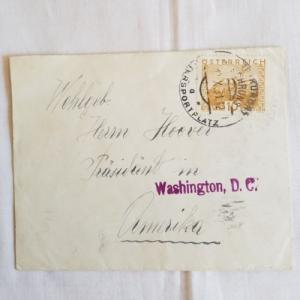 ÖSTERREICH
Wohlgeb
Herrn Hoover
Präsident in
Washington, D. C.
Amerika